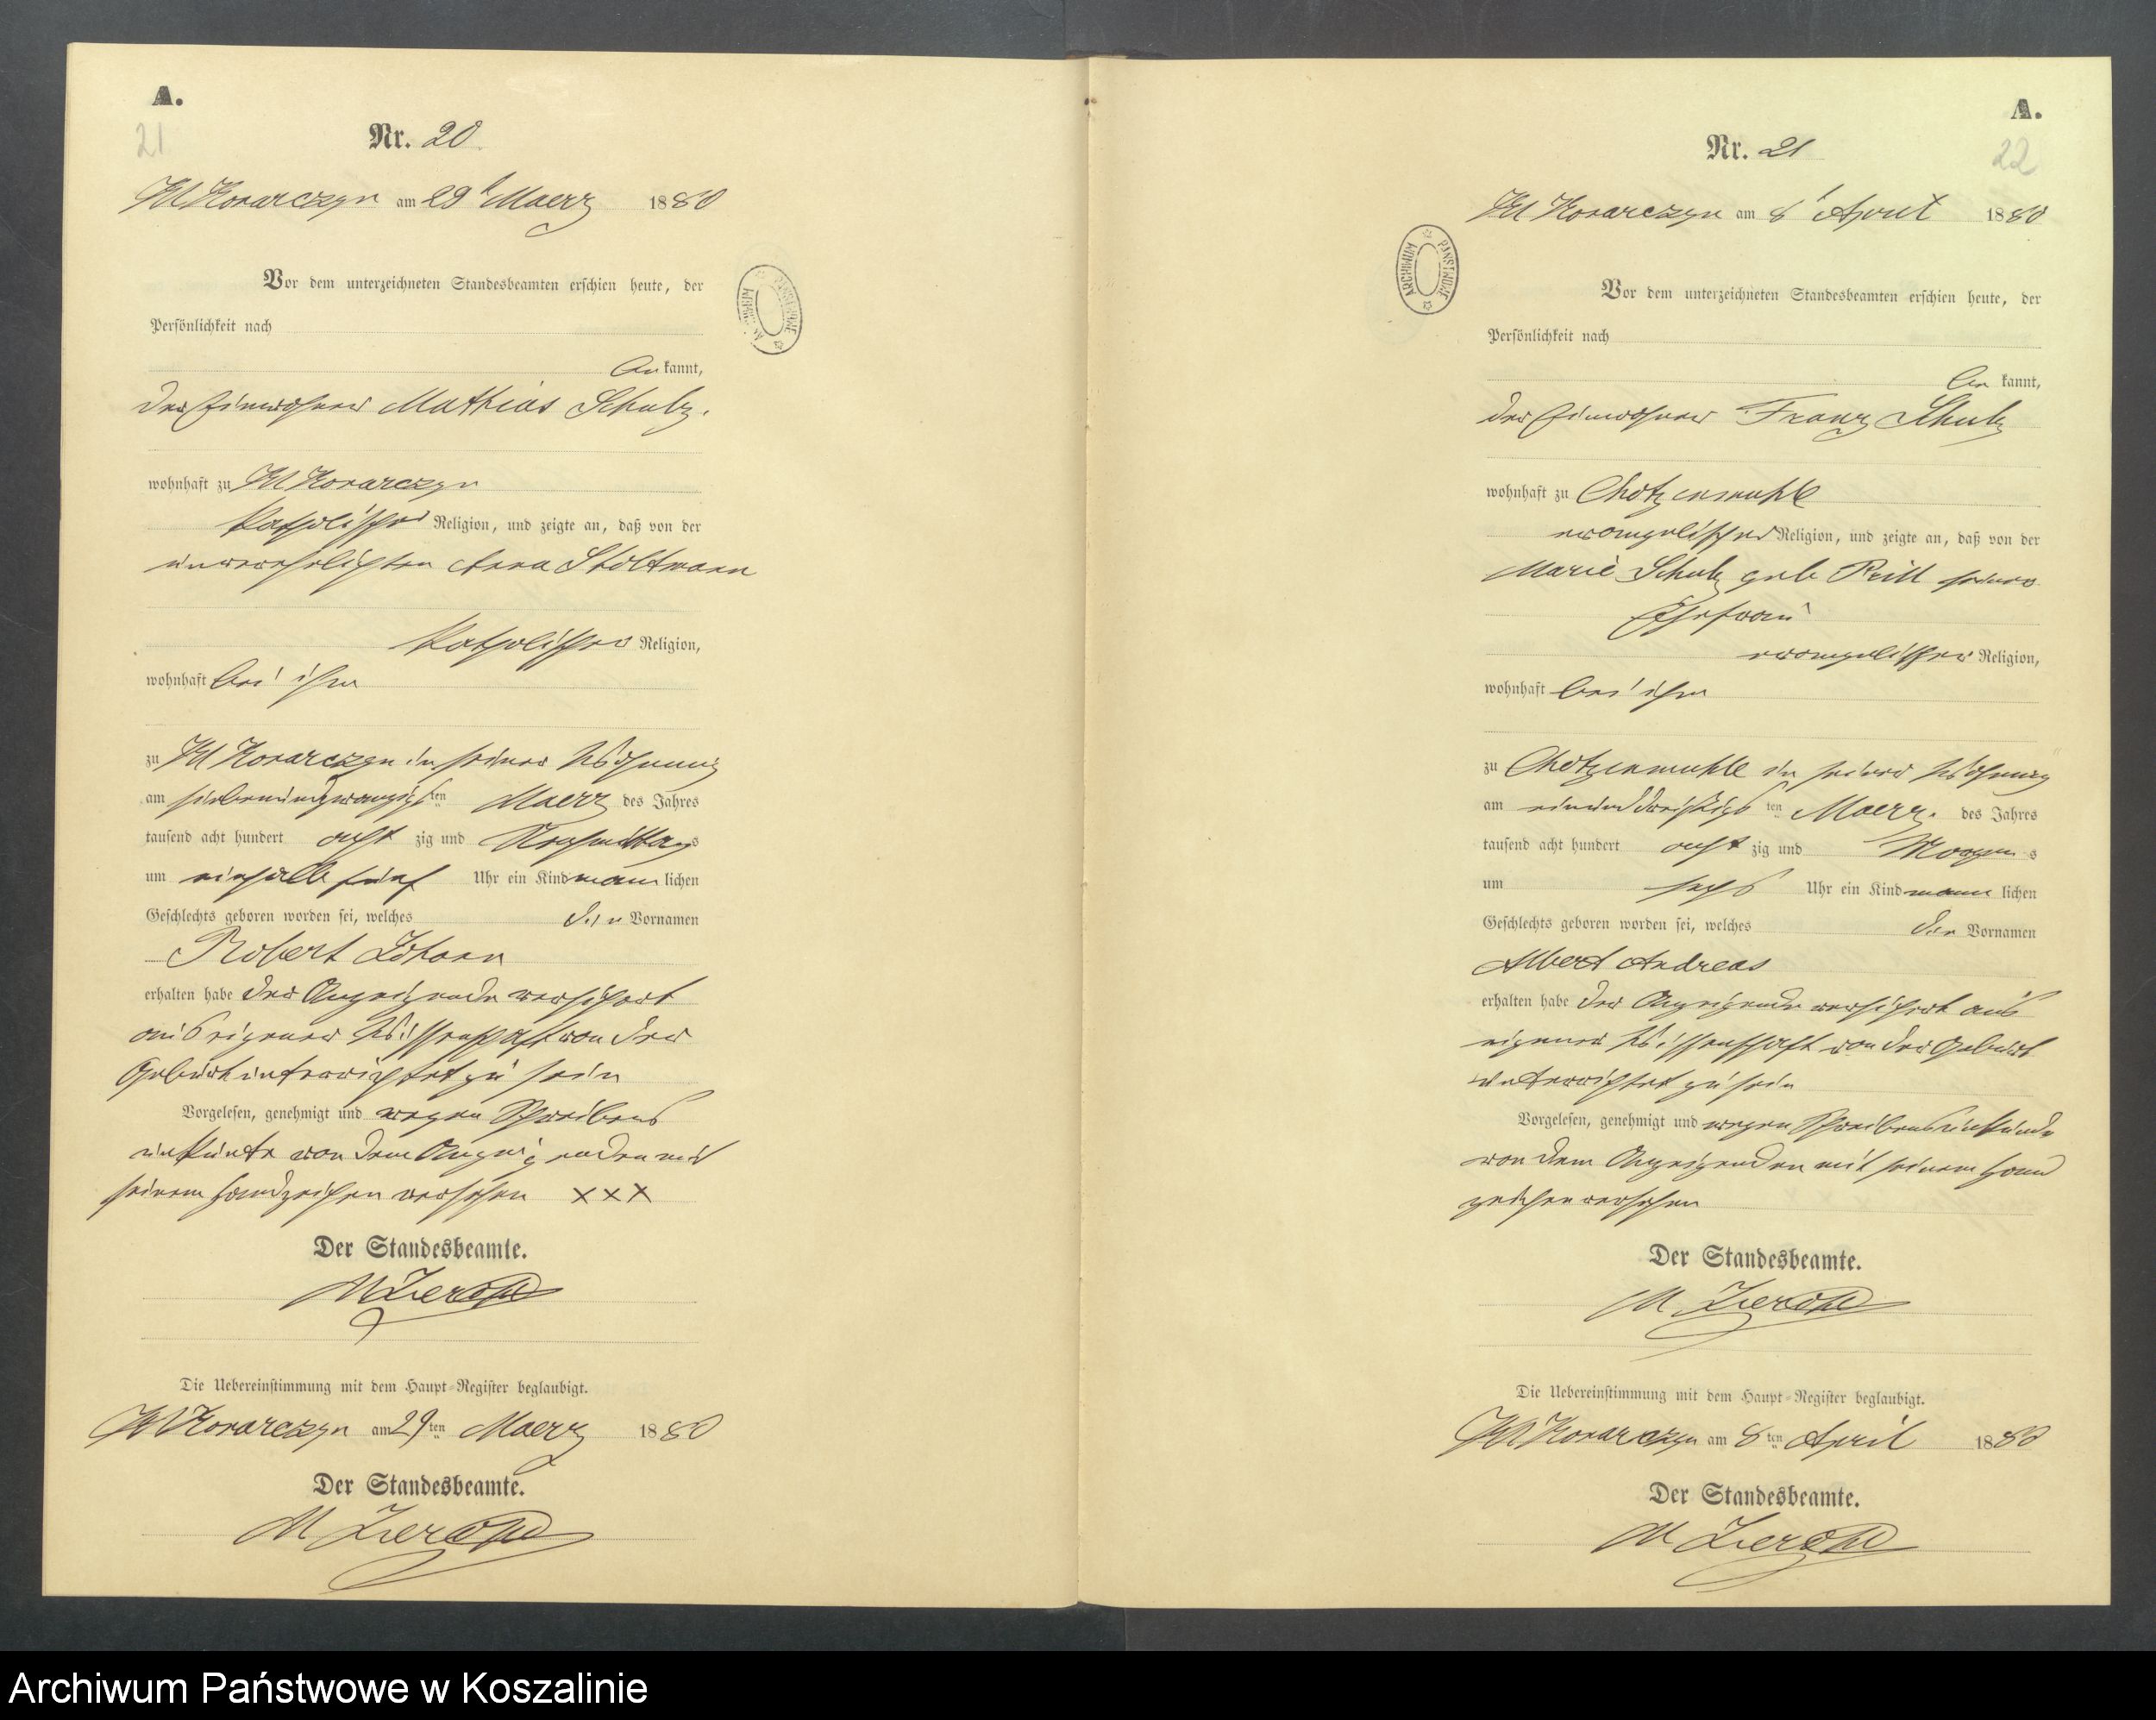 A.
21
Nr. 20
Kl Konarczyn am 29t Maerz 1880
Vor dem unterzeichneten Standesbeamten erschien heute, der
Persönlichkeit nach
be kannt,
der Einwohner Mathias Schulz.
wohnhaft zu Kl Konarczyn
katholischer Religion, und zeigte an, daß von der
unverehelichten Anna Stoltmann
katholischer Religion,
wohnhaft bei ihm
zu Kl Konarczyn in seiner Wohnung
am siebenundzwanzigsten Maerz des Jahres
tausend acht hundert acht zig und Nachmittags
um einhalb fünf Uhr ein Kind männlichen
Geschlechts geboren worden sei, welches den Vornamen
Robert Johann
erhalten habe der Anzeigende versichert
aus eigener Wissenschaft von der
Geburt unterrichtet zu sein
Vorgelesen, genehmigt und wegen Schreibens
unkunde von dem Anzeigenden mit
seinem Handzeichen versehen XXX
Der Standesbeamte.
Die Uebereinstimmung mit dem Haupt-Register beglaubigt.
Kl Konarczyn am 29ten Maerz 1880
Der Standesbeamte.
A.
22
Nr. 21
Kl Konarczyn am 8t April 1880
ARCHIWUM PAŃSTWOWE
Vor dem unterzeichneten Standesbeamten erschien heute, der
Persönlichkeit nach
be kannt,
der Einwohner Franz Schulz
wohnhaft zu Chotzenmühle
evangelischer Religion, und zeigte an, daß von der
Marie Schulz geb Prill seiner
Ehefrau
evangelischer Religion,
wohnhaft bei ihm
zu Chotzenmühle in seiner Wohnung
am einunddreißigsten Maerz. des Jahres
tausend acht hundert acht zig und Morgens
um sechs Uhr ein Kind männlichen
Geschlechts geboren worden sei, welches den Vornamen
Albert Andreas
erhalten habe der Anzeigende versichert aus
eigener Wissenschaft von der Geburt
unterrichtet zu sein
Vorgelesen, genehmigt und wegen Schreibensunkunde
von dem Anzeigenden mit seinem Hand
zeichen versehen
Der Standesbeamte.
Die Uebereinstimmung mit dem Haupt-Register beglaubigt.
Kl Konarczyn am 8ten April 1880
Der Standesbeamte.
Archiwum Państwowe w Koszalinie